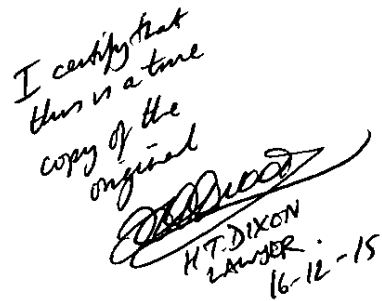 I certify that
this is a true
copy of the
original
H T. DIXON
LAWYER.
16-12-15